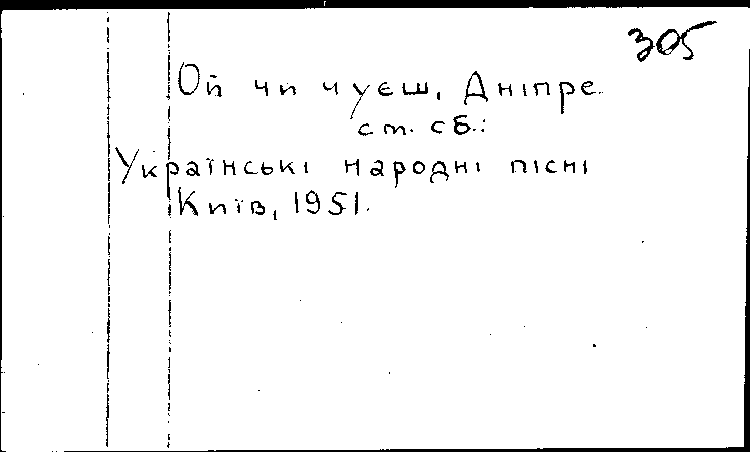 305
Ой чи чуєш, Дніпре.
ст. сб.:
Українські народні пісні
Київ, 1951.